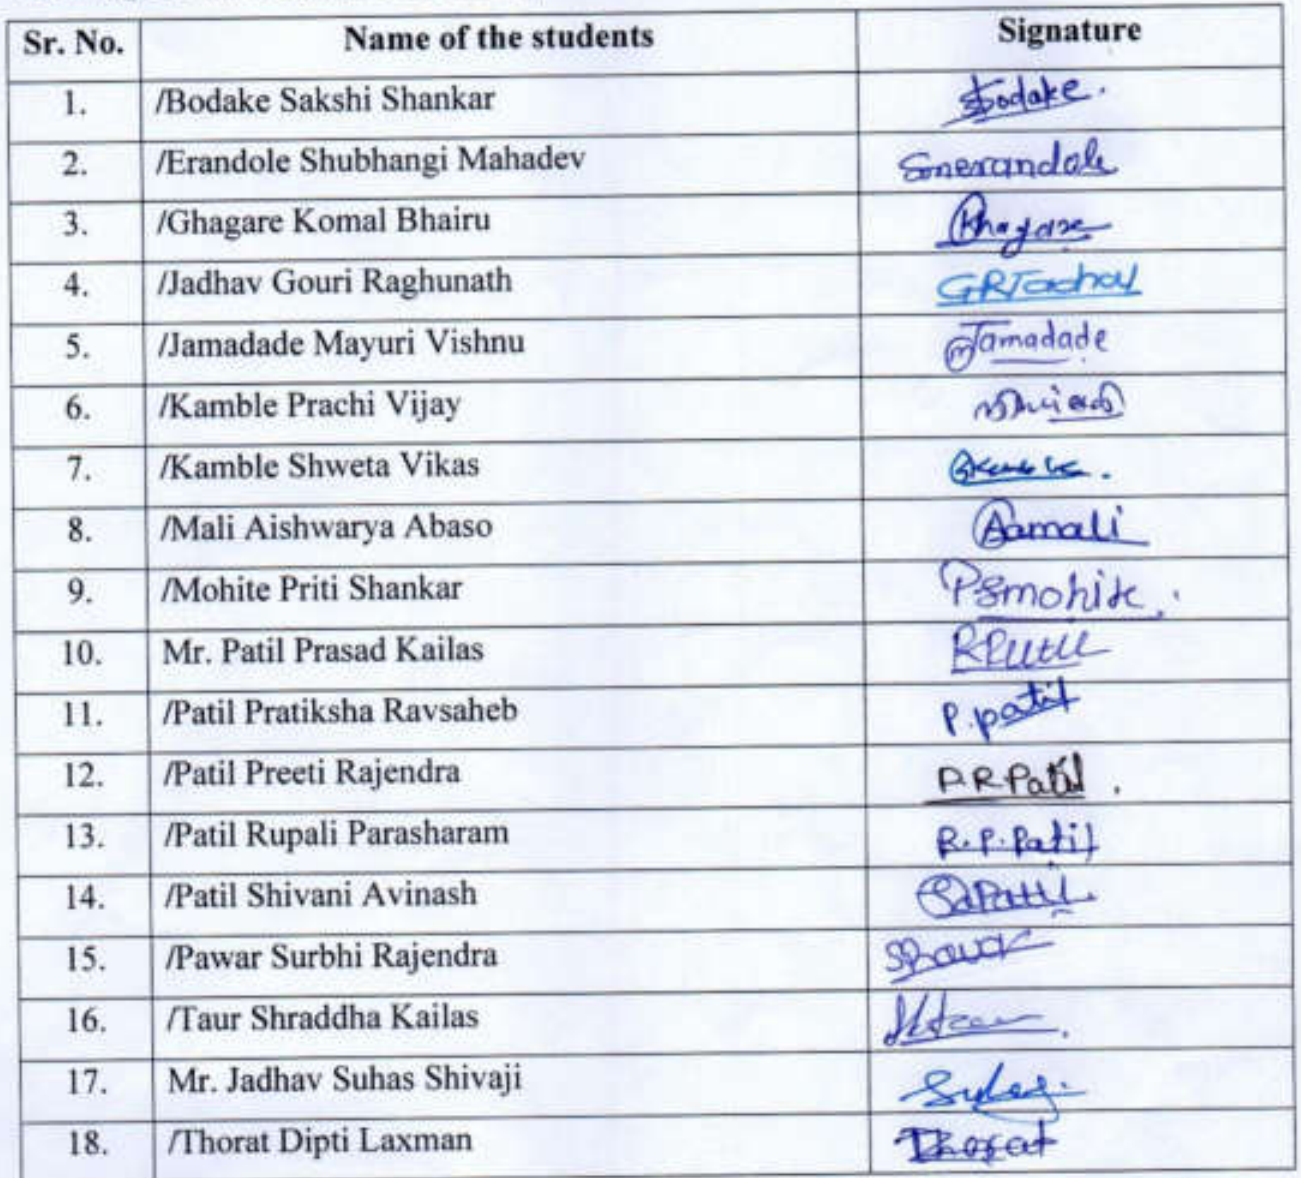 Sr. No. Name of the students Signature
1. /Bodake Sakshi Shankar Bodake.
2. /Erandole Shubhangi Mahadev Smerandole
3. /Ghagare Komal Bhairu Khagare
4. /Jadhav Gouri Raghunath GRJadhav
5. /Jamadade Mayuri Vishnu mJamadade
6. /Kamble Prachi Vijay
7. /Kamble Shweta Vikas
8. /Mali Aishwarya Abaso Aamali
9. /Mohite Priti Shankar PSmohite.
10. Mr. Patil Prasad Kailas
11. /Patil Pratiksha Ravsaheb P.patil
12. /Patil Preeti Rajendra P.R Patil.
13. /Patil Rupali Parasharam R.P.Patil
14. /Patil Shivani Avinash SAPatil
15. /Pawar Surbhi Rajendra
16. /Taur Shraddha Kailas
17. Mr. Jadhav Suhas Shivaji
18. /Thorat Dipti Laxman Thorat